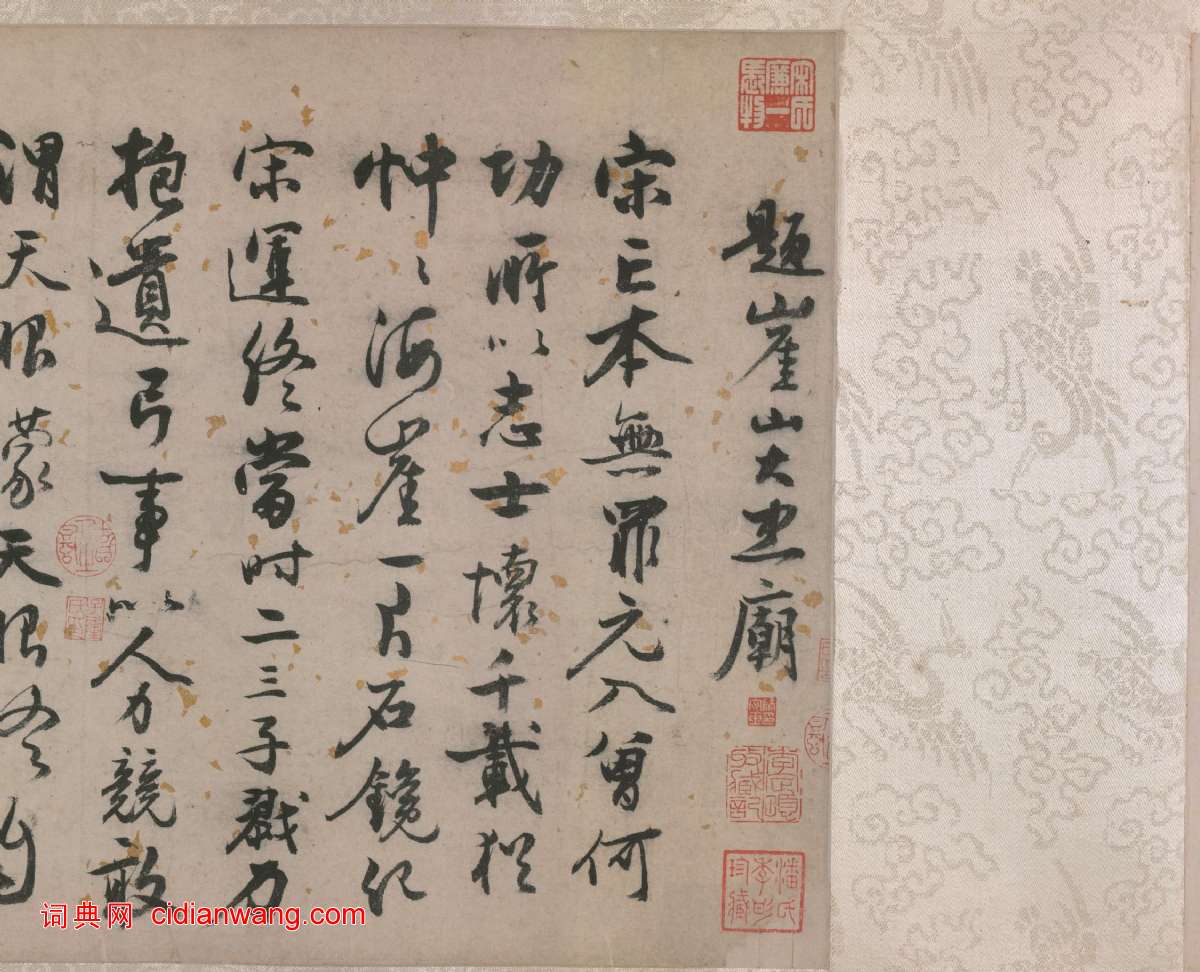 題崖山大忠廟
宋亡本無罪元入曾何
功所以志士懷千載猶
忡〻海崖一片石紀
宋運終當時二三子戮力
抱遺弓事以人力競敢
謂天眼蒙天眼
潘氏季彤珍藏
词典网 cidianwang.com